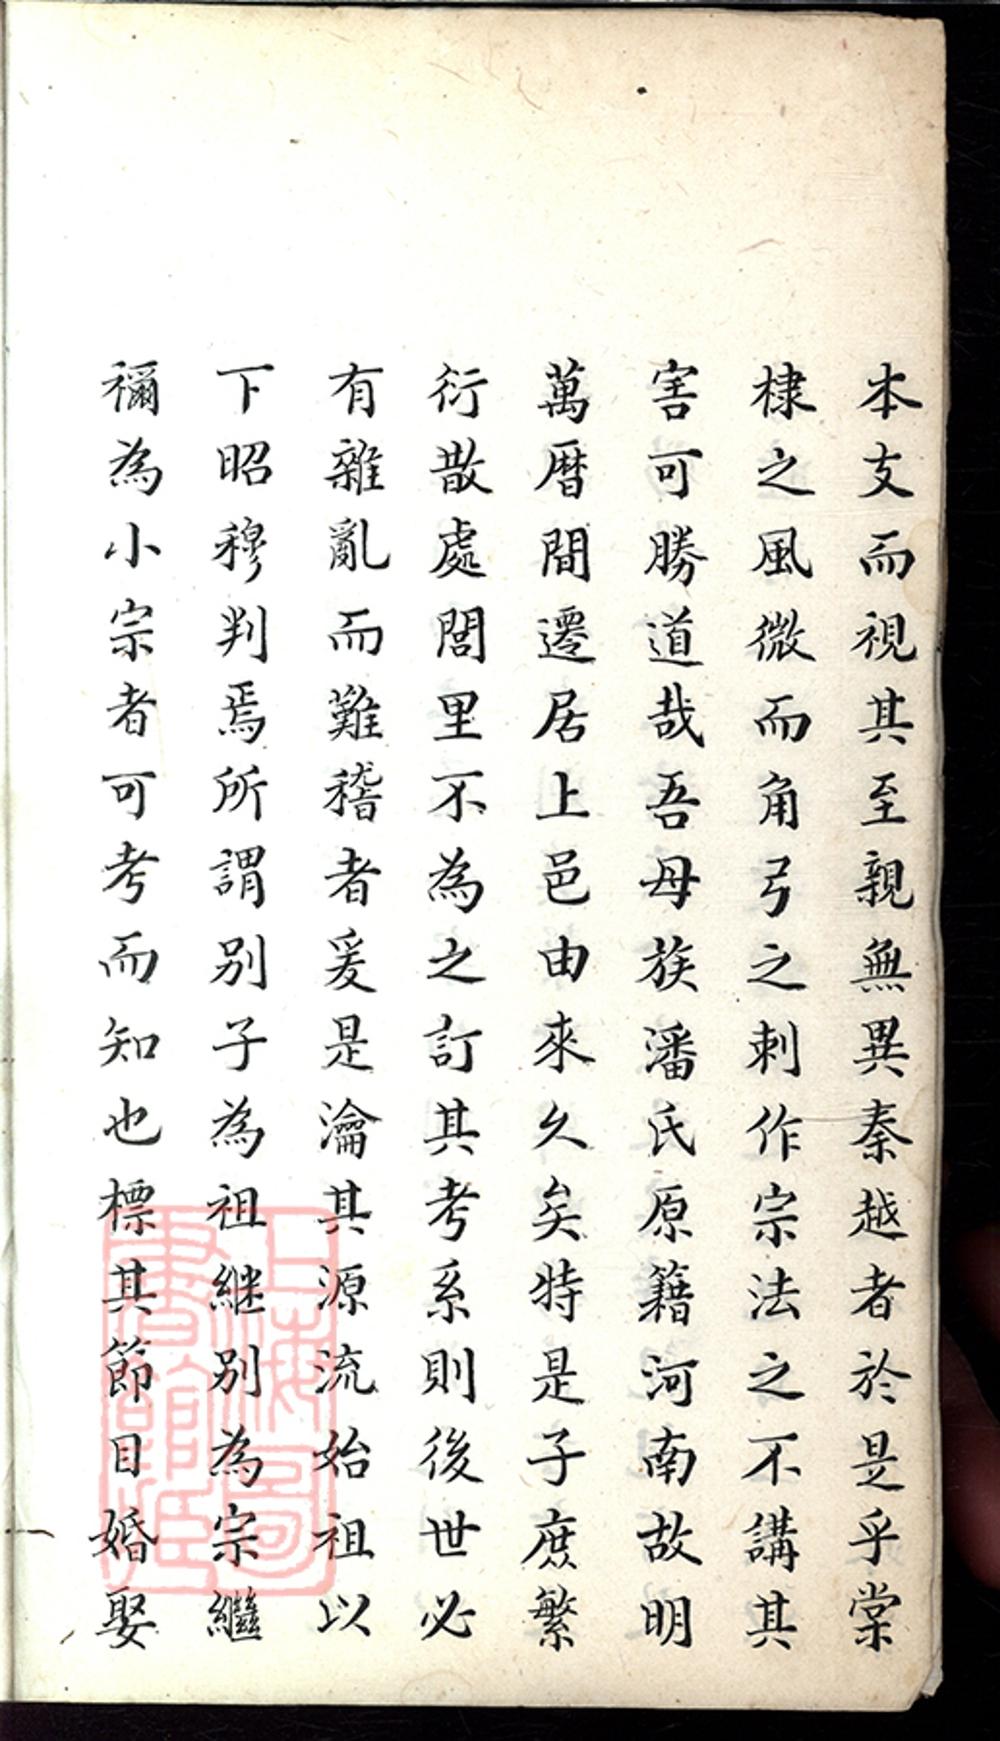 本支而視其至親無異秦越者於是乎棠
棣之風微而角弓之刺作宗法之不講其
害可勝道哉吾母族潘氏原籍河南故明
萬曆間遷居上邑由來久矣特是子庶繁
衍散處閭里不為之訂其考系則後世必
有雜亂而難稽者爰是瀹其源流始祖以
下昭穆判焉所謂別子為祖継别為宗繼
禰為小宗者可考而知也標其節目婚娶
上海圖
書館藏